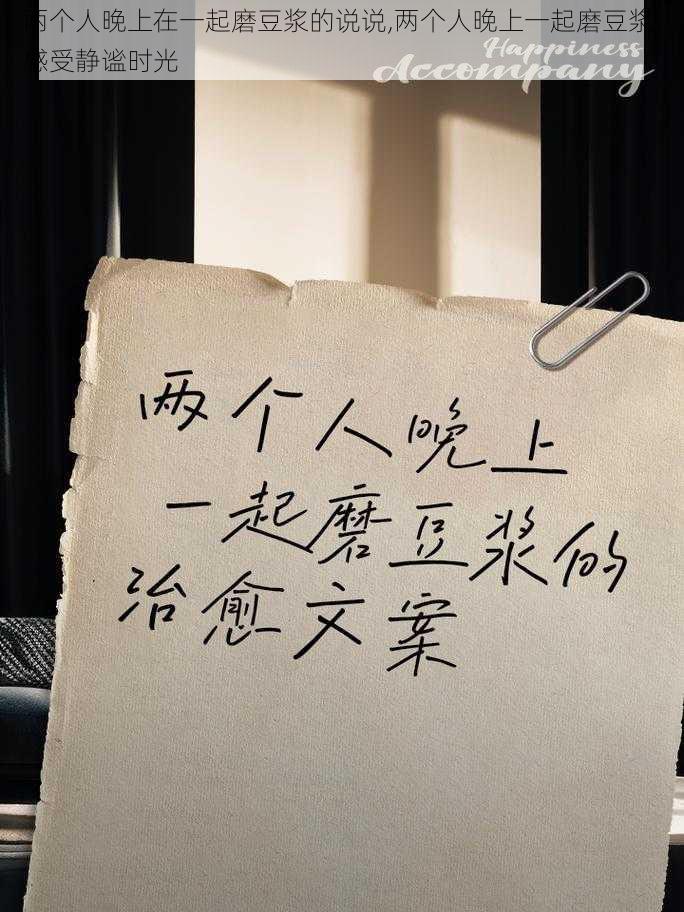 两个人晚上在一起磨豆浆的说说,两个人晚上一起磨豆浆
感受静谧时光
Happiness
Accompany
两个人晚上
一起磨豆浆的
治愈文案